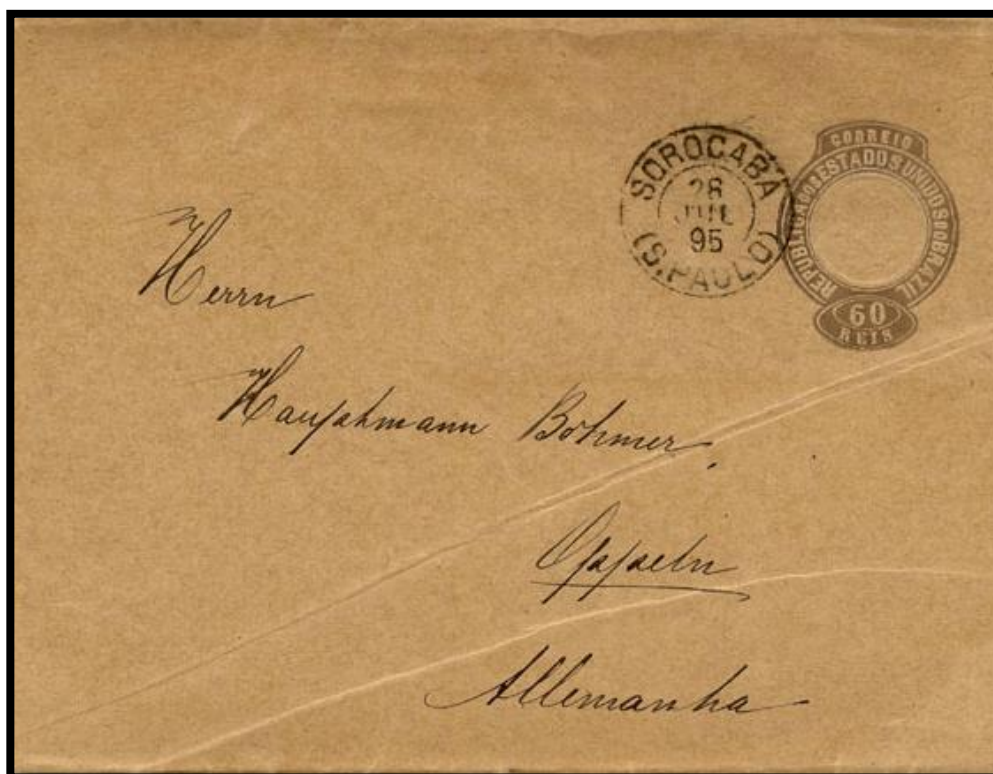 SOROCABA
28
JUL
95
(S.PAULO)
CORREIO
REPUBLICA DOS ESTADOS UNIDOS DO BRAZIL
60
REIS
Herrn
Hauptmann Böhmer,
Oppeln
Allemanha